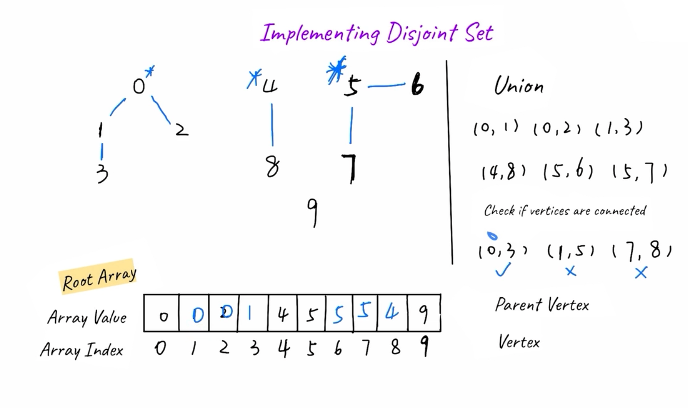 Implementing Disjoint Set
0* *4 *5 6
1 2
3 8 7
9
Union
(0, 1) (0, 2) (1, 3)
(4, 8) (5, 6) (5, 7)
Check if vertices are connected
(0, 3) (1, 5) (7, 8)
✓ × ×
Root Array
Array Value 0 0 0 1 4 5 5 5 4 9
Parent Vertex
Array Index 0 1 2 3 4 5 6 7 8 9
Vertex